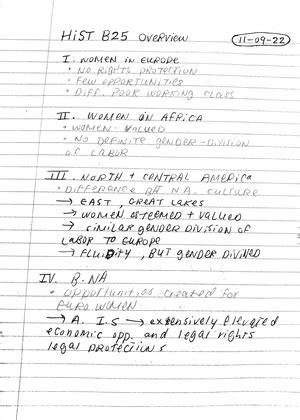 HIST B25 overview
11-09-22
I. WOMEN IN EUROPE
• NO RIGHTS PROTECTION
• FEW OPPORTUNITIES
• DIFF. POOR WORKING CLASS
II. WOMEN IN AFRICA
• WOMEN VALUED
• NO DEFINITE GENDER-DIVISION
OF LABOR
III. NORTH + CENTRAL AMERICA
• DIFFERENCE N.A. CULTURE
→ EAST, GREAT LAKES
→ WOMEN ESTEEMED + VALUED
→ SIMILAR GENDER DIVISION OF
LABOR TO EUROPE
→ FLUIDITY, BUT GENDER DIVIDED
IV. B.NA
• opportunities created for
EURO WOMEN
→ A. I.S → extensively elevated
economic opp. and legal rights
legal protections